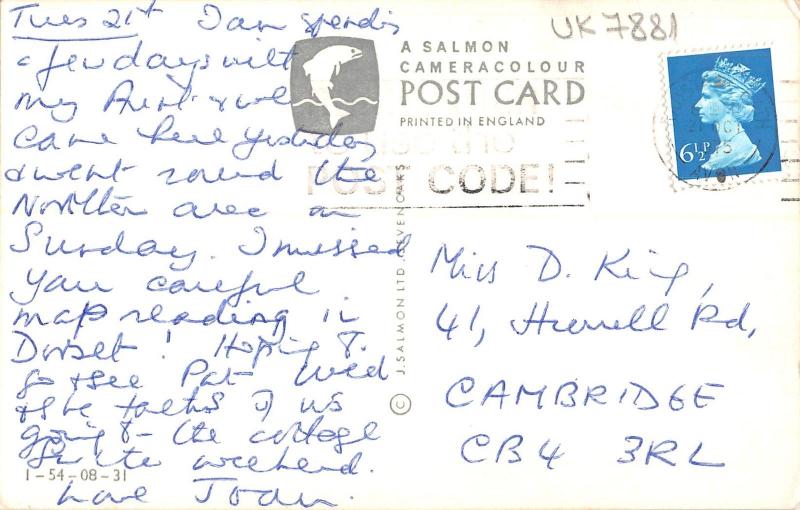 Tues 21st I am spending
a few days with
my Aunt & we
came here yesterday
& went round the
Northern area on
Sunday. I missed
your careful
map reading in
Dorset! Hoping to
go & see Pat Wed
& she talks of us
going to the cottage
for the weekend.
Love Joan.
1-54-08-31
A SALMON
CAMERACOLOUR
POST CARD
PRINTED IN ENGLAND
POST CODE!
© J. SALMON LTD., SEVENOAKS
UK7881
6½P
Miss D. King,
41, Hurrell Rd,
CAMBRIDGE
CB4 3RL